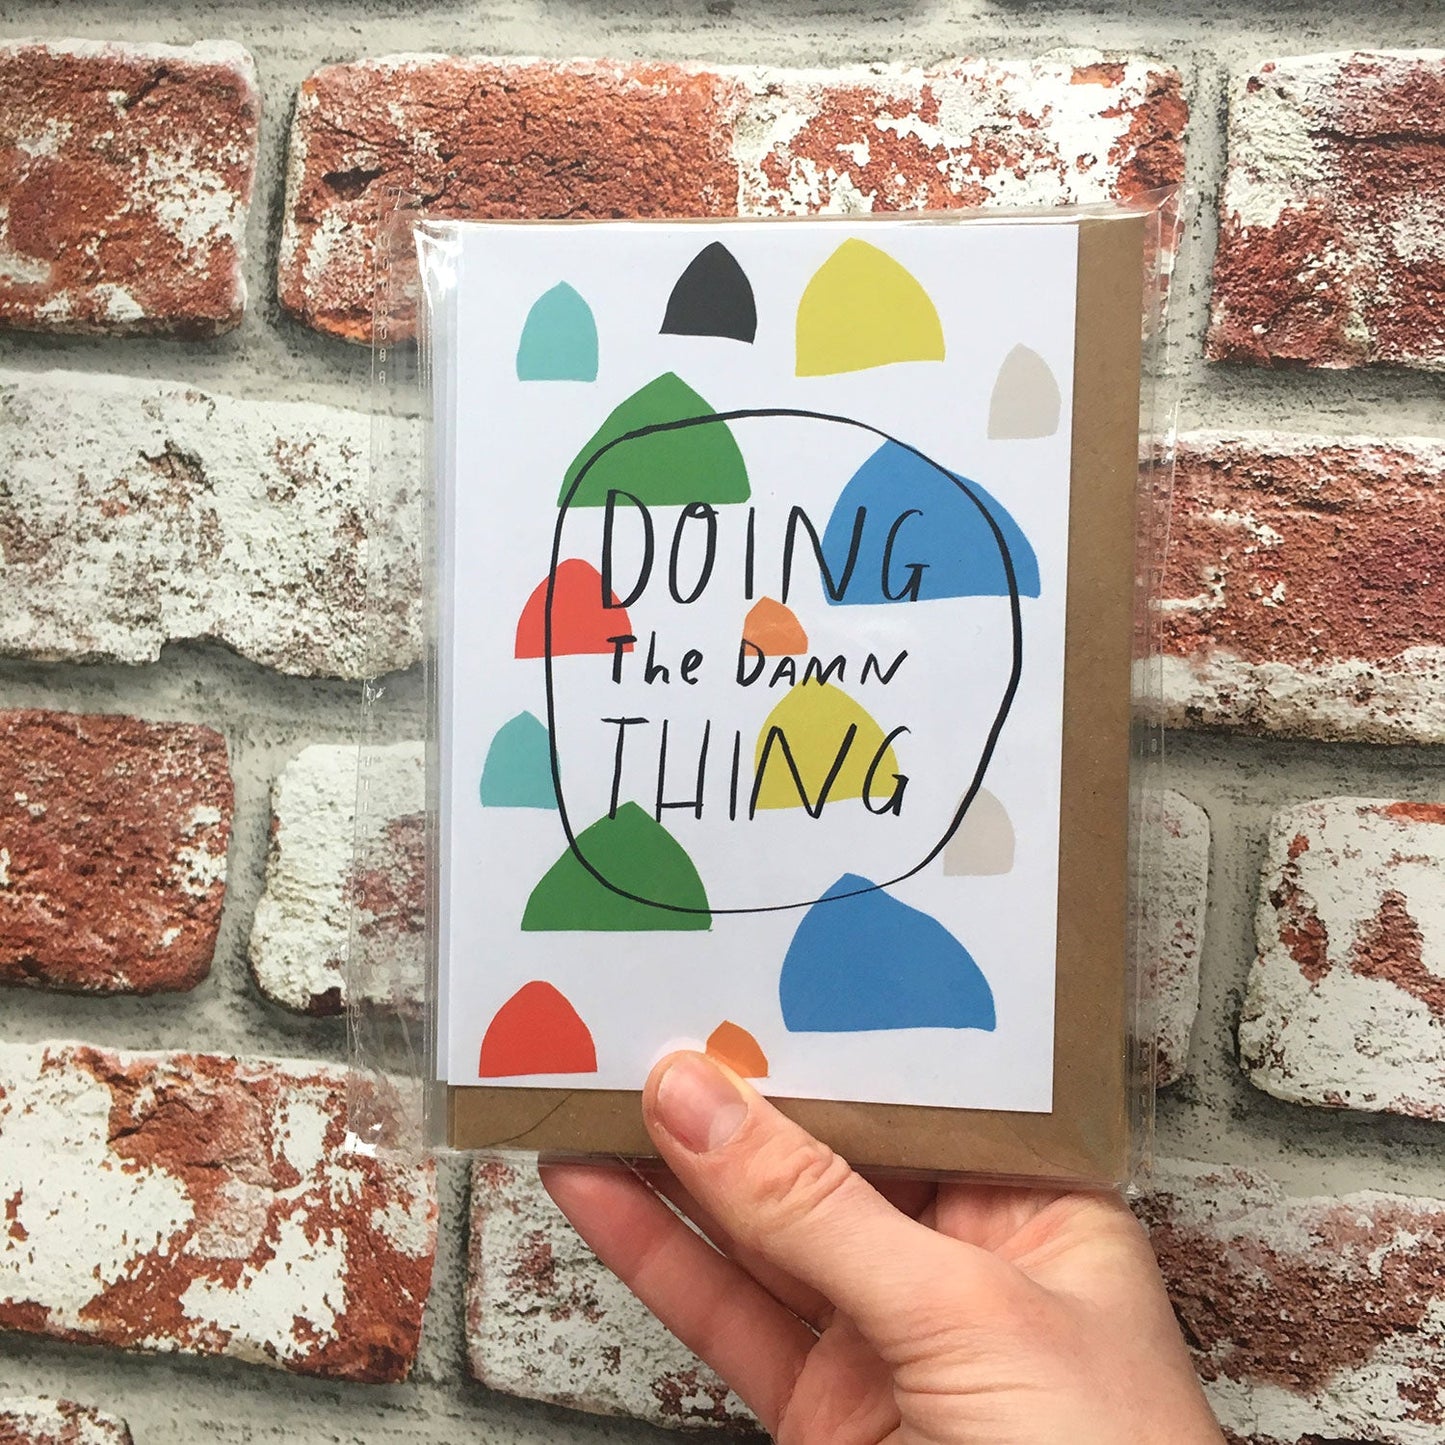 DOING
The DAMN
THING